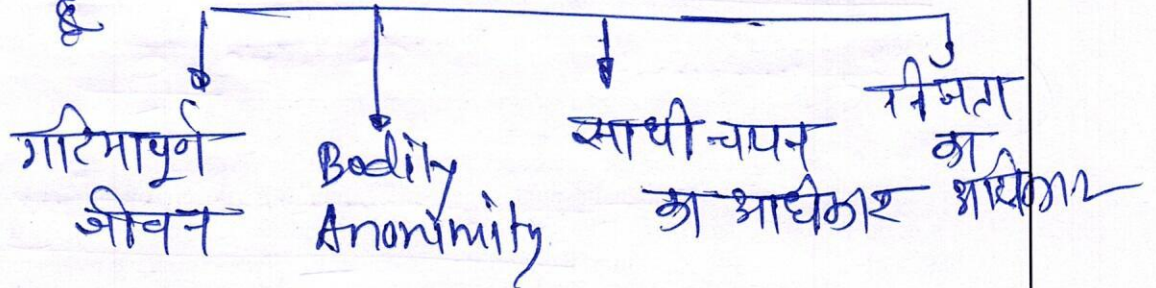 गरिमापूर्ण
जीवन
Bodily
Anonimity
साथी चयन
का अधिकार
निजता
का
अधिकार